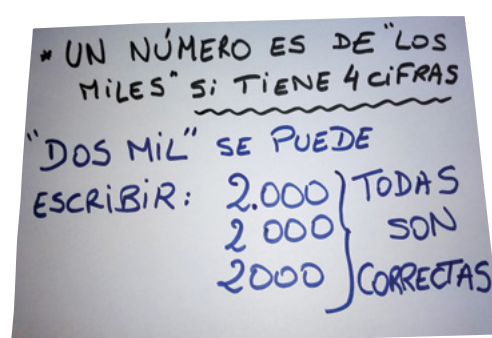 * UN NÚMERO ES DE "LOS
MILES" SI TIENE 4 CIFRAS
"DOS MIL" SE PUEDE
ESCRIBIR: 2.000 } TODAS
2 000 SON
2000 CORRECTAS